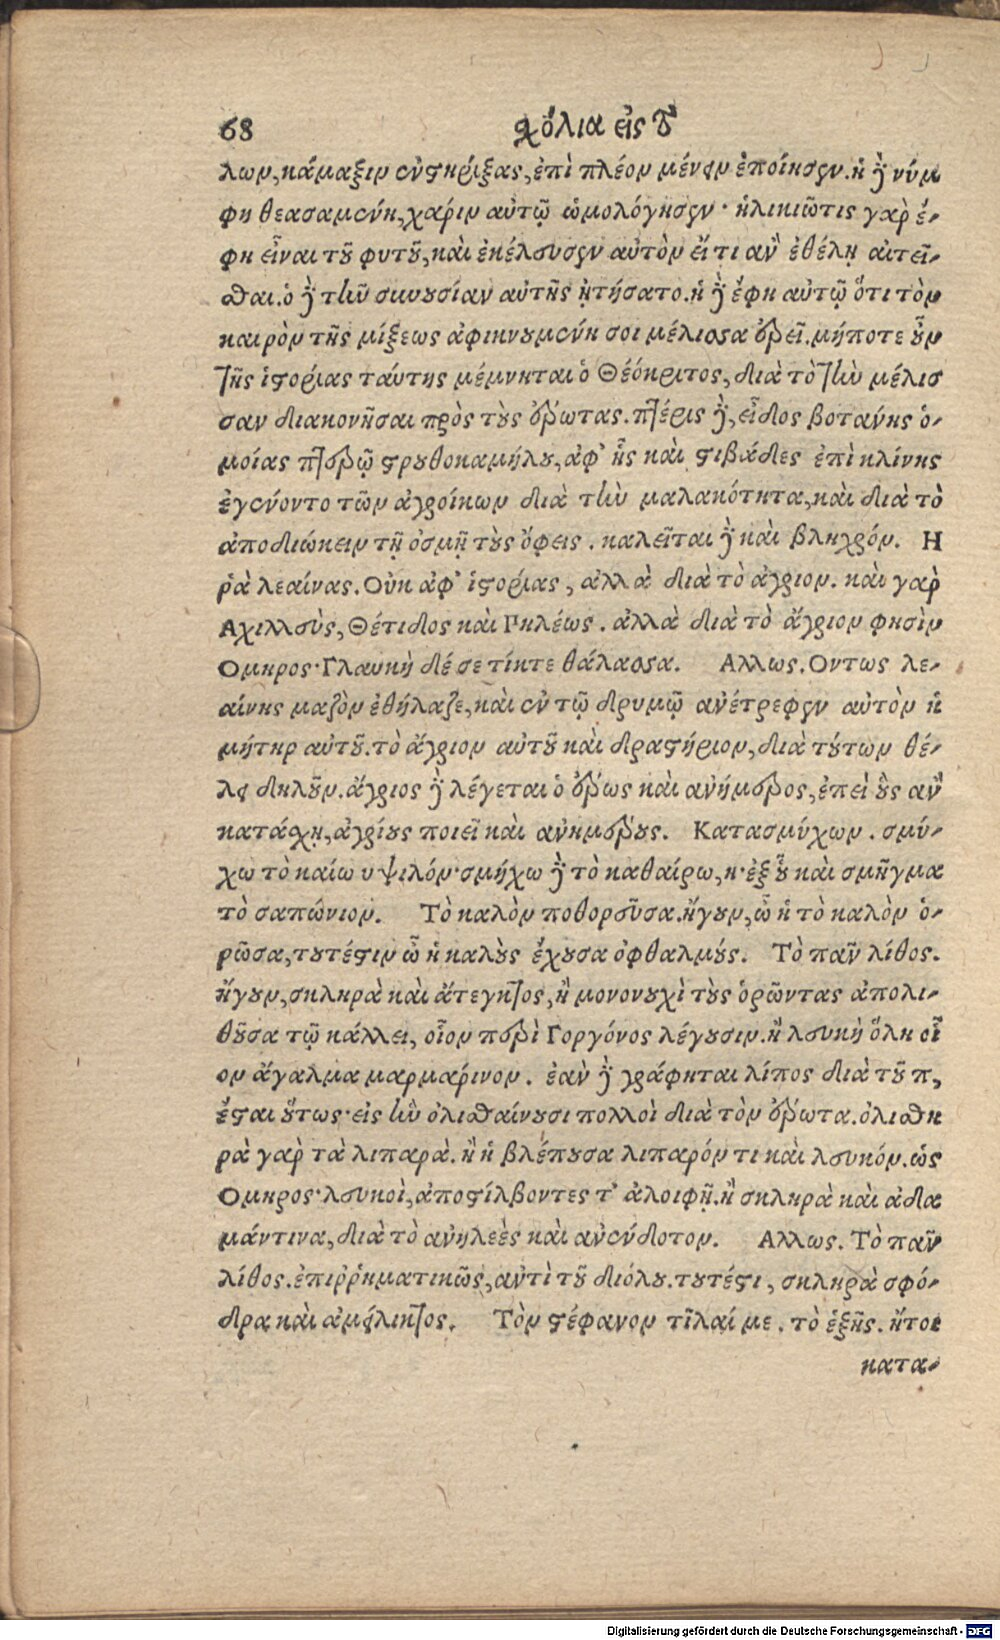 68 σχόλια εἰς τ
λων, κάμαξιν ἐνστηρίξας, ἐπὶ πλέον μένειν ἐποίησεν. ἡ δὲ νύμ
φη θεασαμένη, χάριν αὐτῷ ὡμολόγησεν· ἡλικιῶτις γὰρ ἔ-
φη εἶναι τοῦ φυτοῦ, καὶ ἐκέλευσεν αὐτὸν εἴ τι ἂν ἐθέλῃ αἰτεῖ-
σθαι. ὁ δὲ τὴν συνουσίαν αὐτῆς ᾐτήσατο. ἡ δὲ ἔφη αὐτῷ ὅτι τὸν
καιρὸν τῆς μίξεως ἀφικνουμένη σοι μέλισσα ἐρεῖ. μήποτε οὖν
τῆς ἱστορίας ταύτης μέμνηται ὁ Θεόκριτος, διὰ τὸ τὴν μέλισ
σαν διακονῆσαι πρὸς τοὺς ἔρωτας. πτέρις δὲ, εἶδος βοτάνης ὁ-
μοίας πτερῷ στρουθοκαμήλου, ἀφ' ἧς καὶ στιβάδες ἐπὶ κλίνης
ἐγένοντο τῶν ἀγροίκων διὰ τὴν μαλακότητα, καὶ διὰ τὸ
ἀποδιώκειν τῇ ὀσμῇ τοὺς ὄφεις. καλεῖται δὲ καὶ βληχρόν. Η
ῥὰ λεαίνας. Οὐκ ἀφ' ἱστορίας, ἀλλὰ διὰ τὸ ἄγριον. καὶ γὰρ
Αχιλλεὺς, Θέτιδος καὶ Πηλέως. ἀλλὰ διὰ τὸ ἄγριον φησὶν
Ομηρος· Γλαυκὴ δέ σε τίκτε θάλασσα. Αλλως. Οντως λε-
αίνης μαζὸν ἐθήλαζε, καὶ ἐν τῷ δρυμῷ ἀνέτρεφεν αὐτὸν ἡ
μήτηρ αὐτοῦ. τὸ ἄγριον αὐτοῦ καὶ δραστήριον, διὰ τούτων θέ-
λει δηλοῦν. ἄγριος δὲ λέγεται ὁ ἔρως καὶ ἀνήμερος, ἐπεὶ οὓς ἂν
κατάσχῃ, ἀγρίους ποιεῖ καὶ ἀνημέρους. Κατασμύχων. σμύ-
χω τὸ καίω υ ψιλόν· σμήχω δὲ τὸ καθαίρω, η· ἐξ οὗ καὶ σμῆγμα
τὸ σαπώνιον. Τὸ καλὸν ποθορεῦσα. ἤγουν, ὦ ἡ τὸ καλὸν ὁ-
ρῶσα, τουτέστιν ὦ ἡ καλοὺς ἔχουσα ὀφθαλμούς. Τὸ πᾶν λίθος.
ἤγουν, σκληρὰ καὶ ἄτεγκτος, ἢ μονονουχὶ τοὺς ὁρῶντας ἀπολι-
θοῦσα τῷ κάλλει, οἷον περὶ Γοργόνος λέγουσιν. ἢ λευκὴ ὅλη οἷ
ον ἄγαλμα μαρμάρινον. ἐὰν δὲ γράφηται λίπος διὰ τοῦ π,
ἔσται οὕτως· εἰς ἣν ὀλισθαίνουσι πολλοὶ διὰ τὸν ἔρωτα. ὀλισθη
ρὰ γὰρ τὰ λιπαρὰ. ἢ ἡ βλέπουσα λιπαρόν τι καὶ λευκόν. ὡς
Ομηρος· λευκοὶ, ἀποστίλβοντες τ' ἀλοιφῇ. ἢ σκληρὰ καὶ ἀδα
μάντινα, διὰ τὸ ἀνηλεὲς καὶ ἀνένδοτον. Αλλως. Τὸ πᾶν
λίθος. ἐπιῤῥηματικῶς, ἀντὶ τοῦ διόλου. τουτέστι, σκληρὰ σφό-
δρα καὶ ἀμείλικτος. Τὸν στέφανον τῖλαί με. τὸ ἑξῆς. ἤτοι
κατα-
Digitalisierung gefördert durch die Deutsche Forschungsgemeinschaft - DFG